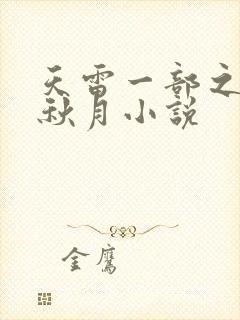 天雷一部之
秋月小説
金鷹